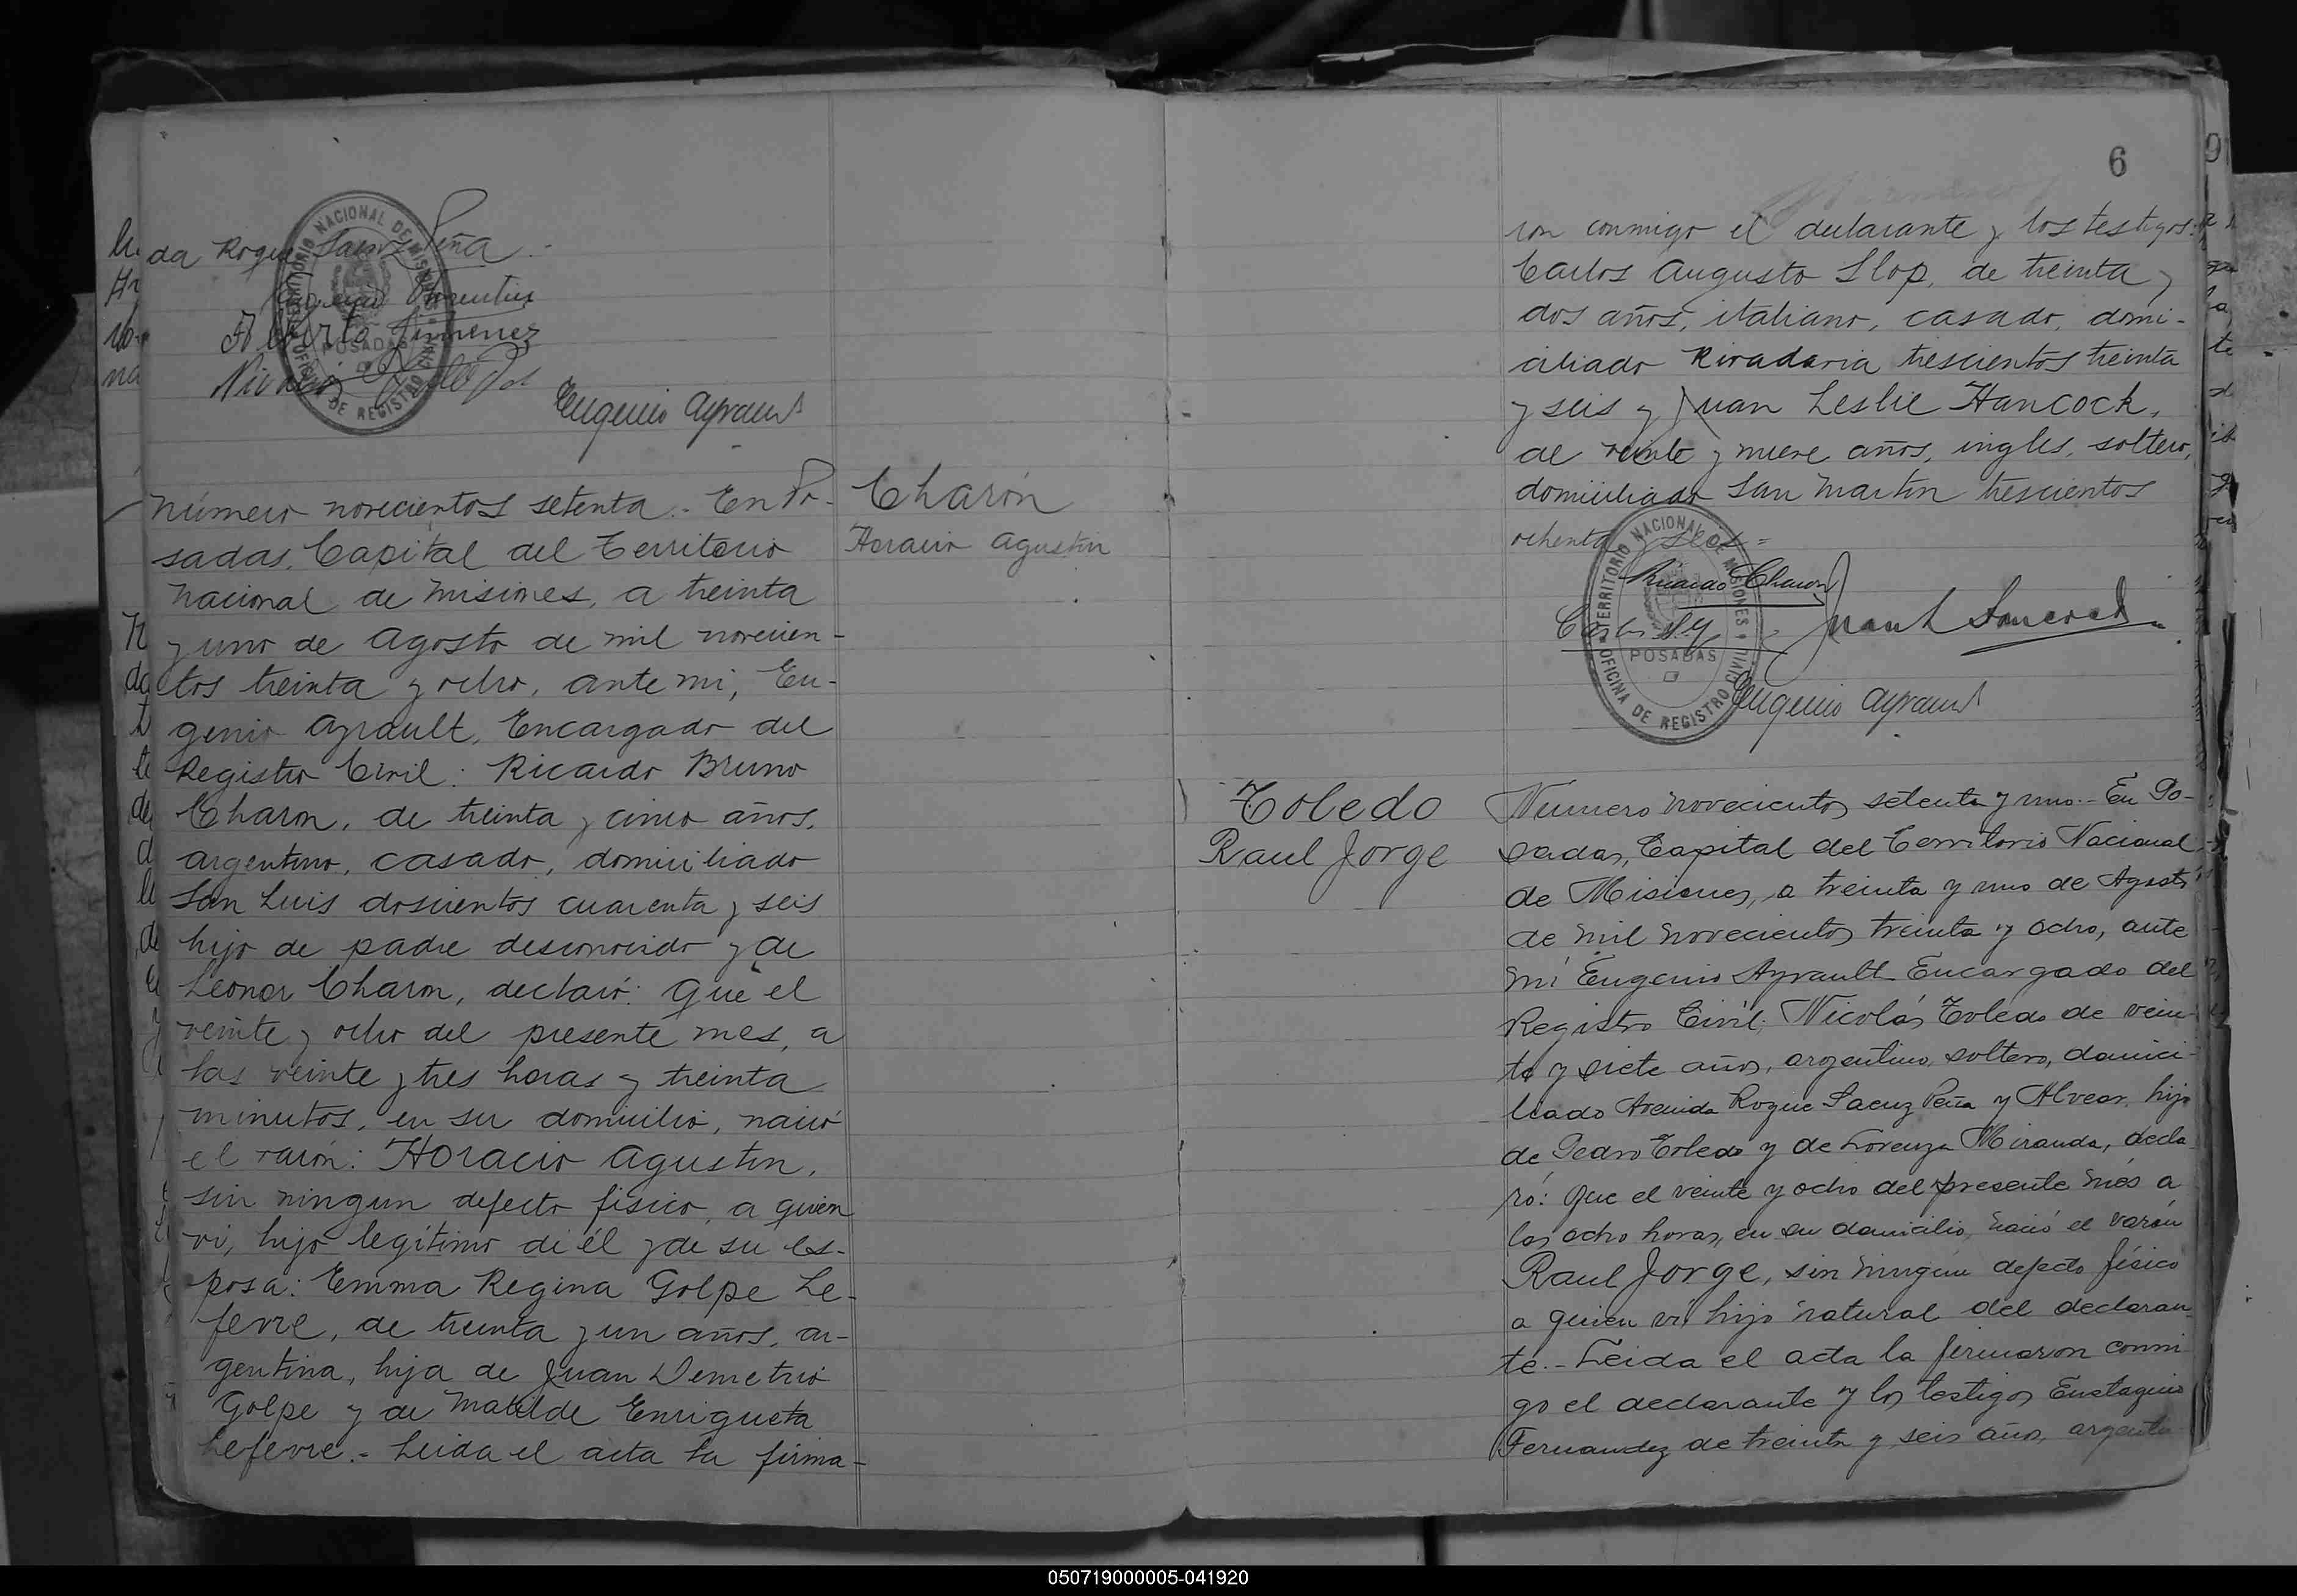 da Roque Saenz Peña.-
Alberto Jimenez
Eugenio Ayrault
TERRITORIO NACIONAL DE MISIONES
POSADAS
OFICINA DE REGISTRO CIVIL
Charón
Horacio Agustin
Número novecientos setenta.- En Po-
sadas, Capital del Territorio
Nacional de Misiones, a treinta
y uno de Agosto de mil novecien-
tos treinta y ocho, ante mi, Eu-
genio Ayrault, Encargado del
Registro Civil: Ricardo Bruno
Charon, de treinta y cinco años,
argentino, casado, domiciliado
San Luis doscientos cuarenta y seis
hijo de padre desconocido y de
Leonor Charon, declaró: Que el
veinte y ocho del presente mes, a
las veinte y tres horas y treinta
minutos, en su domicilio, nació
el varón: Horacio Agustin,
sin ningun defecto fisico, a quien
vi, hijo legítimo de él y de su es-
posa: Emma Regina Golpe Le-
fevre, de treinta y un años, ar-
gentina, hija de Juan Demetrio
Golpe y de Matilde Enriqueta
Lefevre.- Leida el acta la firma-
6
ron conmigo el declarante y los testigos:
Carlos Augusto Slop, de treinta y
dos años, italiano, casado, domi-
ciliado Rivadavia trescientos treinta
y seis y Juan Leslie Hancock,
de veinte y nueve años, ingles, soltero,
domiciliado San Martin trescientos
ochenta y seis =
Ricardo Charon
Juan L Hancock
Eugenio Ayrault
TERRITORIO NACIONAL DE MISIONES
POSADAS
OFICINA DE REGISTRO CIVIL
Toledo
Raul Jorge
Numero novecientos setenta y uno.- En Po-
sadas, Capital del Territorio Nacional
de Misiones, a treinta y uno de Agosto
de mil novecientos treinta y ocho, ante
mí Eugenio Ayrault Encargado del
Registro Civil; Nicolás Toledo de vein-
te y siete años, argentino, soltero, domici-
liado Avenida Roque Saenz Peña y Alvear, hijo
de Pedro Toledo y de Lorenza Miranda, decla
ró: Que el veinte y ocho del presente més a
las ocho horas, en su domicilio, nació el varón
Raul Jorge, sin ningún defecto físico
a quien ví hijo natural del declaran
te.- Leida el acta la firmaron conmi
go el declarante y los testigos Eustaquio
Fernandez de treinta y seis años, argenti
050719000005-041920